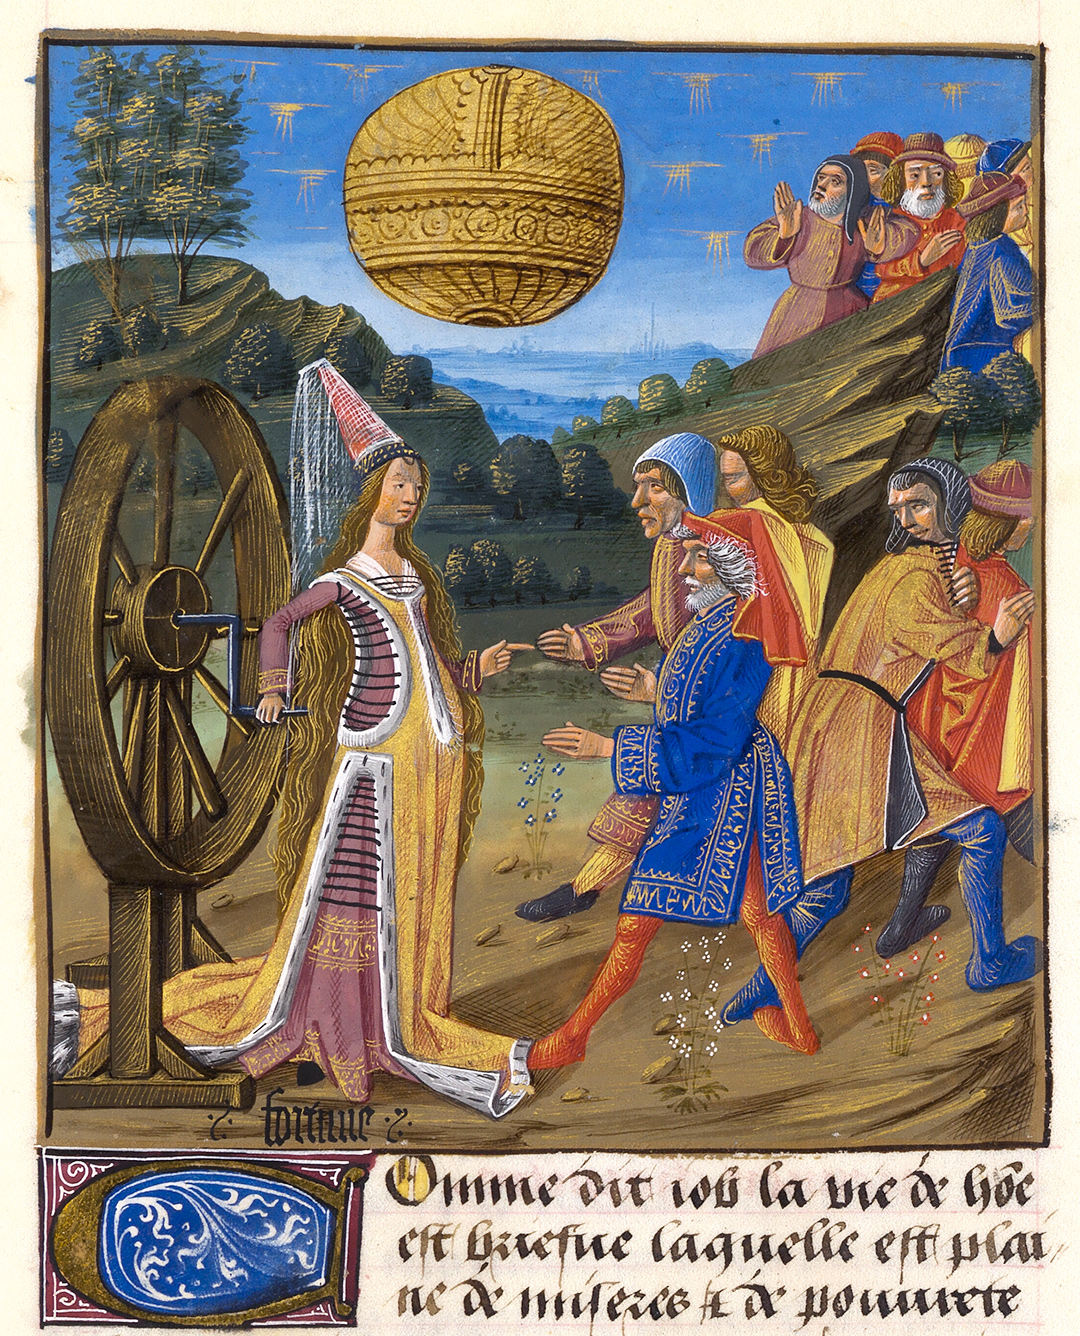 fortune
Comme dit iob la vie de hõe
est briefue laquelle est plai
ne de miseres et de pouurete